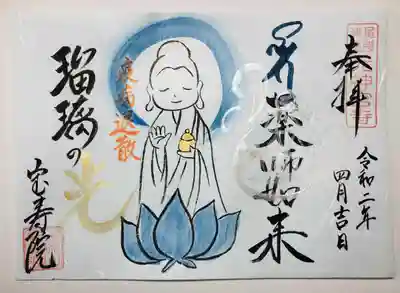 奉拝
令和二年
四月吉日
薬師如来
疫病退散
瑠璃の
光
宝寿院